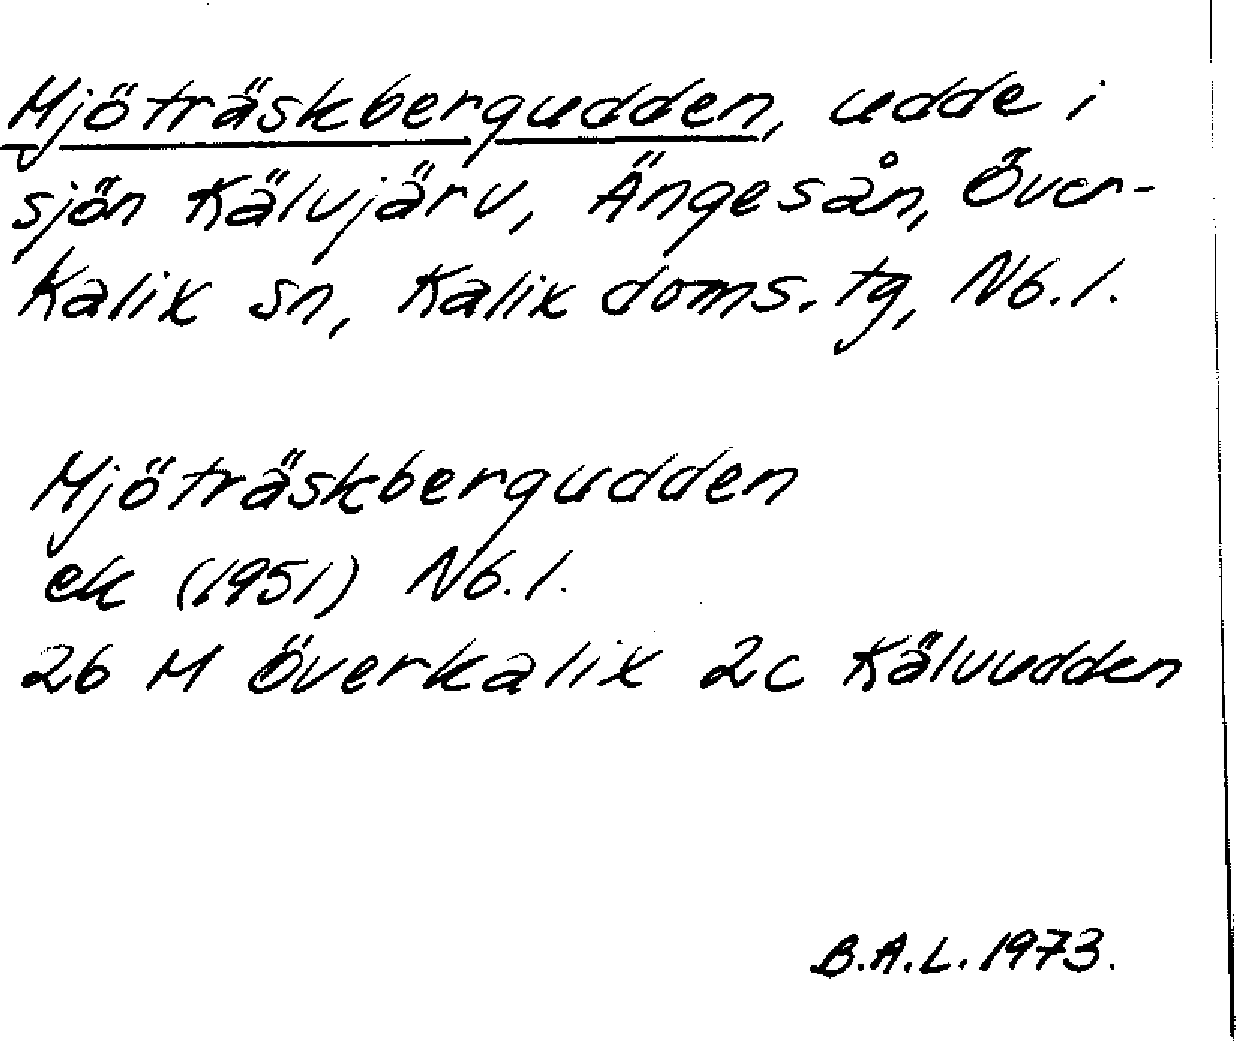 Mjöträskbergudden, udde i
sjön Kälvjärv, Ängesån, Över-
Kalix sn, Kalix doms. tg, Nb. l.
Mjöträskbergudden
ek (1951) Nb. l.
26 M Överkalix 2c Kälvudden
B.A.L. 1973.